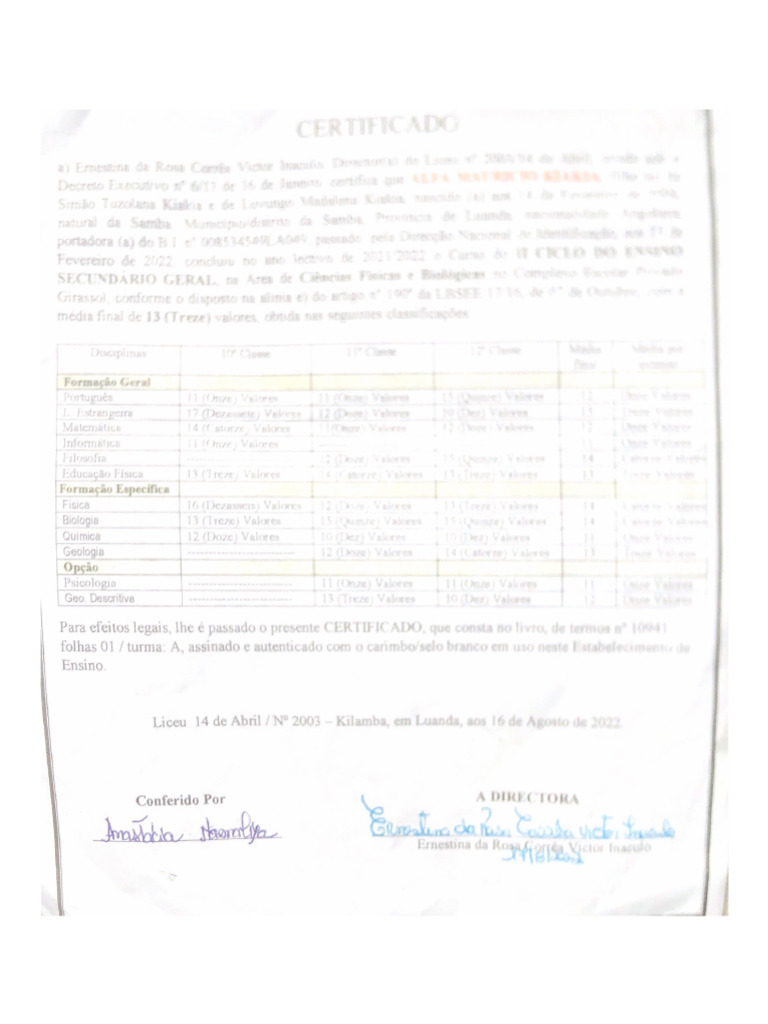 CERTIFICADO
a) Ernestina da Rosa Corrêa Victor Inaculo Director(a) do Liceu nº
Decreto Executivo nº 6/13 de 16 de Janeiro, certifica que
Simão Tuzolana Kiakia e de Luvungo Madalena Kiakia, nascido (a) aos 14 de Fevereiro de
natural da Samba, Município/distrito da Samba, Província de Luanda, nacionalidade Angolana,
portadora (a) do B.I. nº passado pela Direcção Nacional de Identificação, aos
Fevereiro de 2022 concluiu no ano lectivo de 2021/2022 o Curso do II CICLO DO ENSINO
SECUNDÁRIO GERAL, na Área de Ciências Físicas e Biológicas no Complexo Escolar Privado
Girassol, conforme o disposto na alínea e) do artigo nº 190º da LBSEE 17/16, de de Outubro, com a
média final de 13 (Treze) valores, obtida nas seguintes classificações
Disciplinas 10ª Classe 11ª Classe 12ª Classe Média final Média por extenso
Formação Geral
Português 11 (Onze) Valores 11 (Onze) Valores 15 (Quinze) Valores 12 Onze Valores
L. Estrangeira 17 (Dezassete) Valores 12 (Doze) Valores 10 (Dez) Valores 13 Treze Valores
Matemática 14 (Catorze) Valores 11(Onze) Valores 12 (Doze) Valores 12 Onze Valores
Informática 11 (Onze) Valores ---------- ---------- 11 Onze Valores
Filosofia ---------- 12 (Doze) Valores 15 (Quinze) Valores 14 Catorze Valores
Educação Física 13 (Treze) Valores 14 (Catorze) Valores 13 (Treze) Valores 13 Treze Valores
Formação Específica
Física 16 (Dezasseis) Valores 12 (Doze) Valores 13 (Treze) Valores 14 Catorze Valores
Biologia 13 (Treze) Valores 15 (Quinze) Valores 15 (Quinze) Valores 14 Catorze Valores
Química 12 (Doze) Valores 10 (Dez) Valores 10 (Dez) Valores 11 Onze Valores
Geologia ------------------------- 12 (Doze) Valores 14 (Catorze) Valores 13 Treze Valores
Opção
Psicologia ------------------------- 11 (Onze) Valores 11 (Onze) Valores 11 Onze Valores
Geo. Descritiva ------------------------- 13 (Treze) Valores 10 (Dez) Valores 12 Onze Valores
Para efeitos legais, lhe é passado o presente CERTIFICADO, que consta no livro, de termos nº 10941
folhas 01 / turma: A, assinado e autenticado com o carimbo/selo branco em uso neste Estabelecimento de
Ensino.
Liceu 14 de Abril / Nº 2003 – Kilamba, em Luanda, aos 16 de Agosto de 2022
Conferido Por
A DIRECTORA
Ernestina da Rosa Corrêa Victor Inaculo
Ernestina da Rosa Corrêa Victor Inaculo